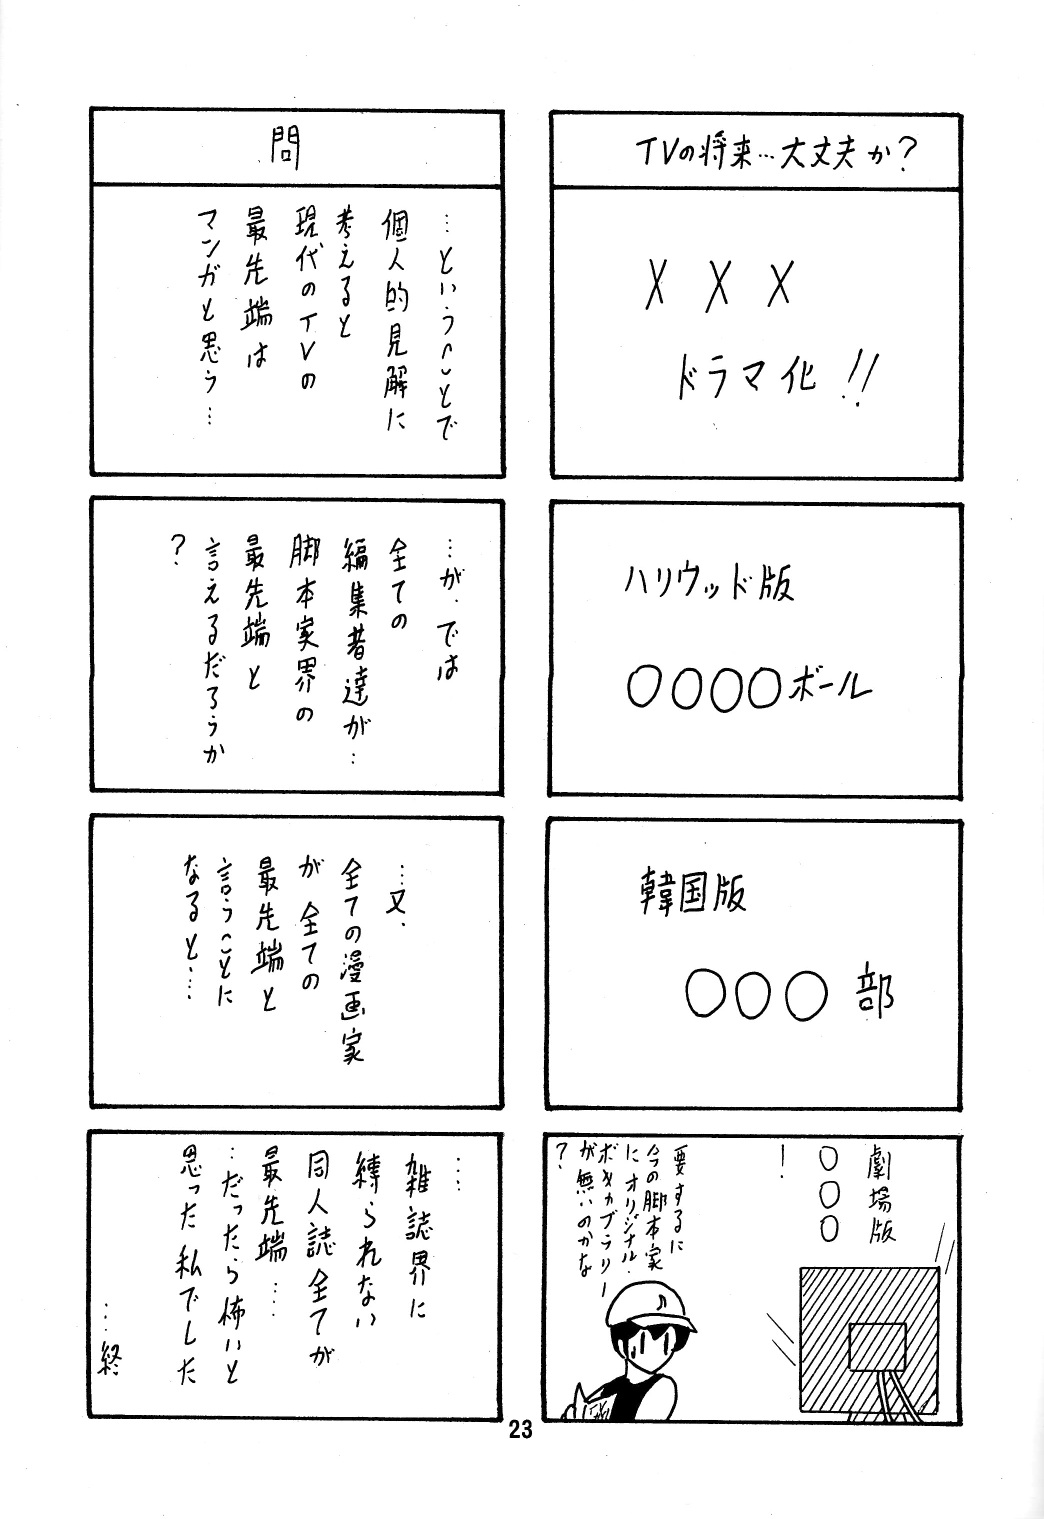 TVの将来…大丈夫か?
XXX
ドラマ化!!
ハリウッド版
○○○○ボール
韓国版
○○○部
劇場版
○○○
!
要するに
今の脚本家
にオリジナル・
ボキャブラリー
が無いのかな
?
問
…ということで
個人的見解に
考えると
現代のTVの
最先端は
マンガと思う…
…が、では
全ての
編集者達が…
脚本家界の
最先端と
言えるだろうか
?
…又、
全ての漫画家
が全ての
最先端と
言うことに
なると…
……
雑誌界に
縛られない
同人誌全てが
最先端…
…だったら怖いと
思った私でした
…終
23